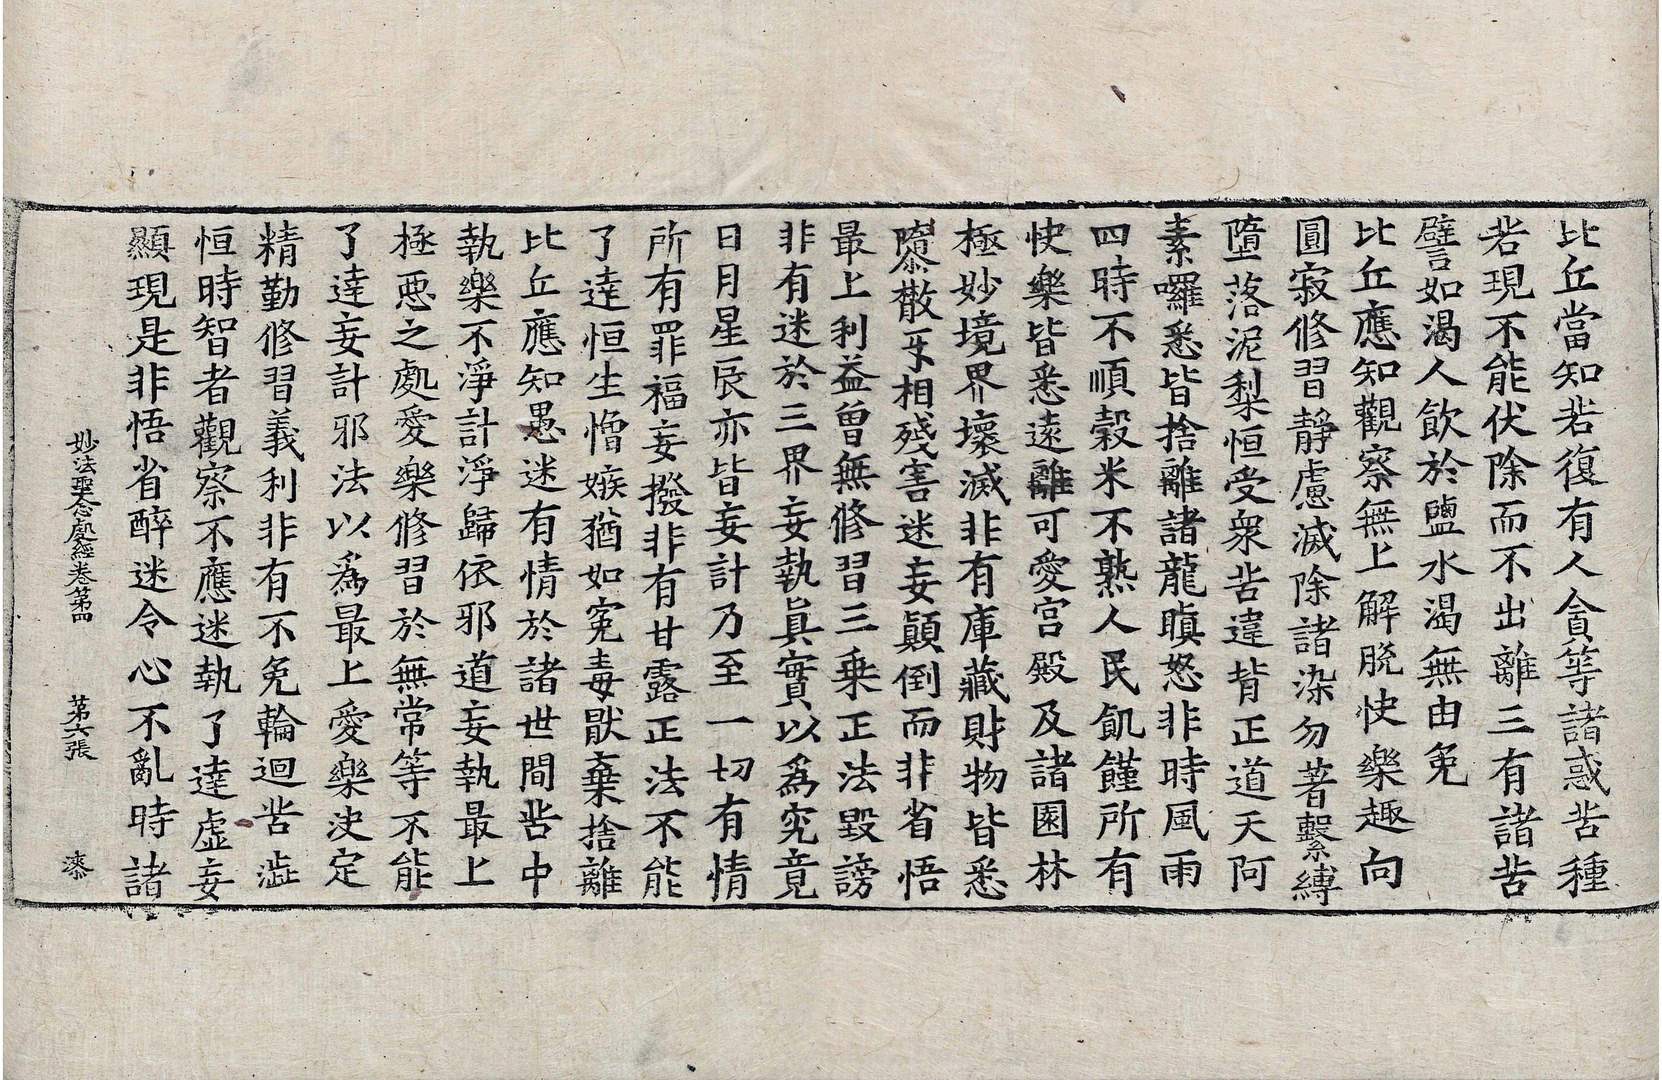 比丘當知若復有人貪等諸惑苦種
若現不能伏除而不出離三有諸苦
譬如渴人飲於鹽水渴無由免
比丘應知觀察無上解脫快樂趣向
圓寂修習靜慮滅除諸染勿著繫縛
墮落泥犁恒受衆苦違背正道天阿
素囉悉皆捨離諸龍瞋怒非時風雨
四時不順穀米不熟人民飢饉所有
快樂皆悉遠離可愛宮殿及諸園林
極妙境界壞滅非有庫藏財物皆悉
隳散互相殘害迷妄顛倒而非省悟
最上利益曾無修習三乗正法毀謗
非有迷於三界妄執眞實以為究竟
日月星辰亦皆妄計乃至一切有情
所有罪福妄撥非有甘露正法不能
了達恒生憎嫉猶如寃毒猒棄捨離
比丘應知愚迷有情於諸世間苦中
執樂不淨計淨歸依邪道妄執最上
極惡之處愛樂修習於無常等不能
了達妄計邪法以為最上愛樂决定
精勤修習義利非有不免輪迴苦澁
恒時智者觀察不應迷執了達虛妄
顯現是非悟省醉迷令心不亂時諸
妙法聖念處經卷第四　第六張　漆